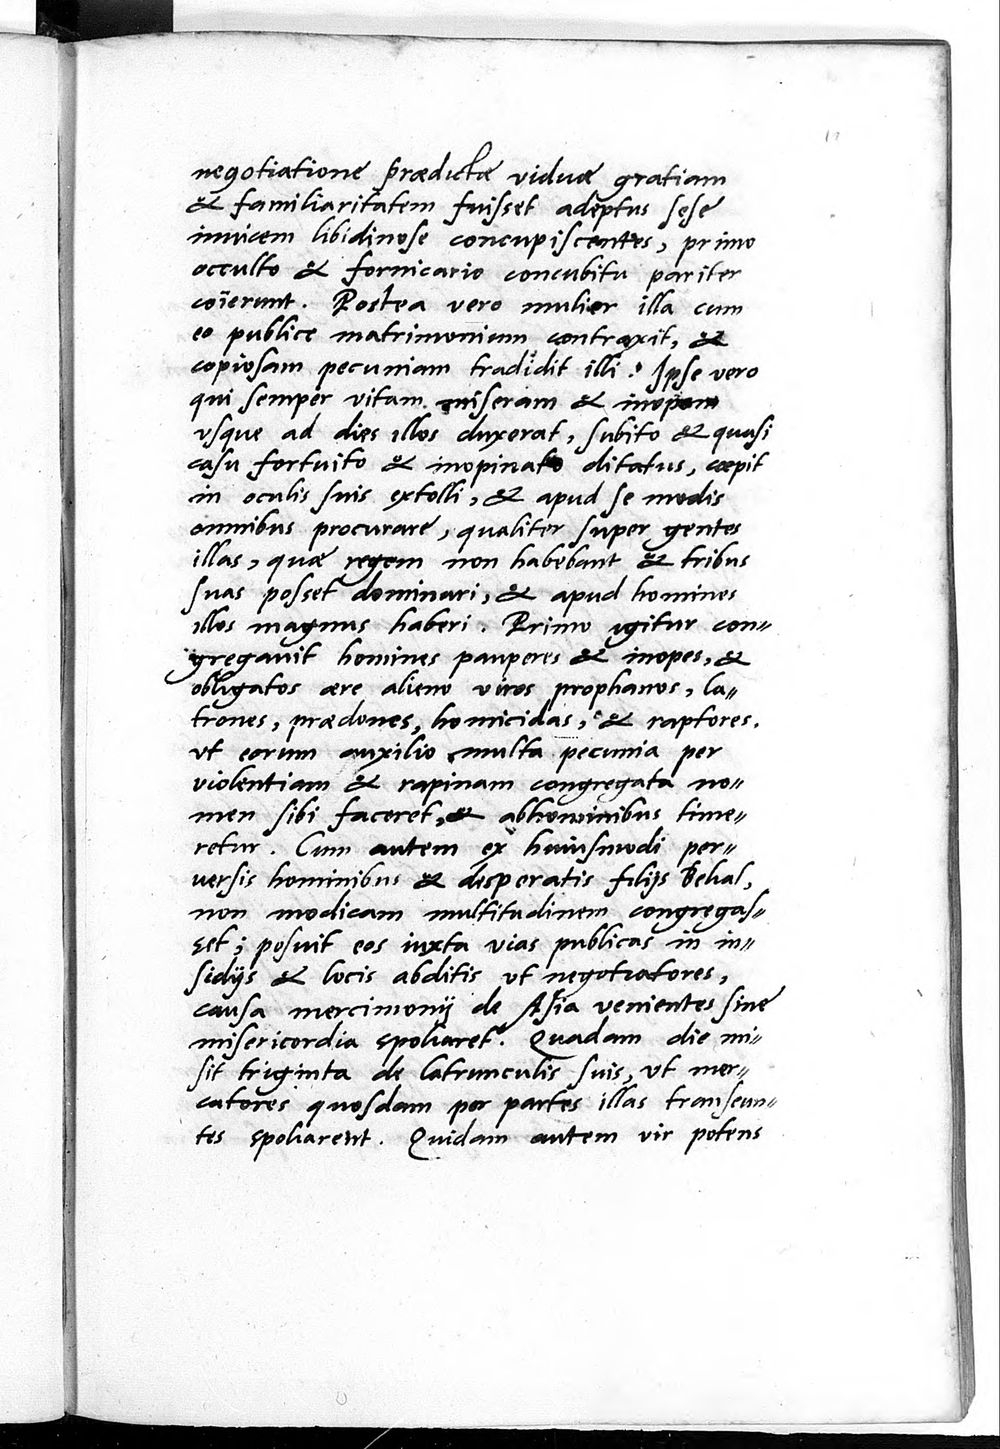 negotiatione prædictæ viduæ gratiam
& familiaritatem fuisset adeptus sęse
inuicem libidinose concupiscentes, primo
occulto & fornicario concubitu pariter
coïerunt. Postea vero mulier illa cum
eo publice matrimonium contraxit, &
copiosam pecuniam tradidit illi. Ipse vero
qui semper vitam miseram & inopem
vsque ad dies illos duxerat, subito & quasi
casu fortuito & inopinato ditatus, cœpit
in oculis suis extolli, & apud se modis
omnibus procurare, qualiter super gentes
illas, quæ regem non habebant & tribus
suas posset dominari, & apud homines
illos magnus haberi. Primo igitur con„
gregauit homines pauperes & inopes, &
obligatos ære alieno viros prophanos, la„
trones, prædones, homicidas, & raptores.
vt eorum auxilio multa pecunia per
violentiam & rapinam congregata no„
men sibi faceret, & ab hominibus time„
retur. Cum autem ex huiusmodi per„
uersis hominibus & desperatis filijs Belial,
non modicam multitudinem congregas„
set; posuit eos iuxta vias publicas in in„
sidijs & locis abditis vt negotiatores,
causa mercimonij de Asia venientes sine
misericordia spoliaret. Quadam die mi„
sit triginta de latrunculis suis, vt mer„
catores quosdam per partes illas transeun„
tes spoliarent. Quidam autem vir potens